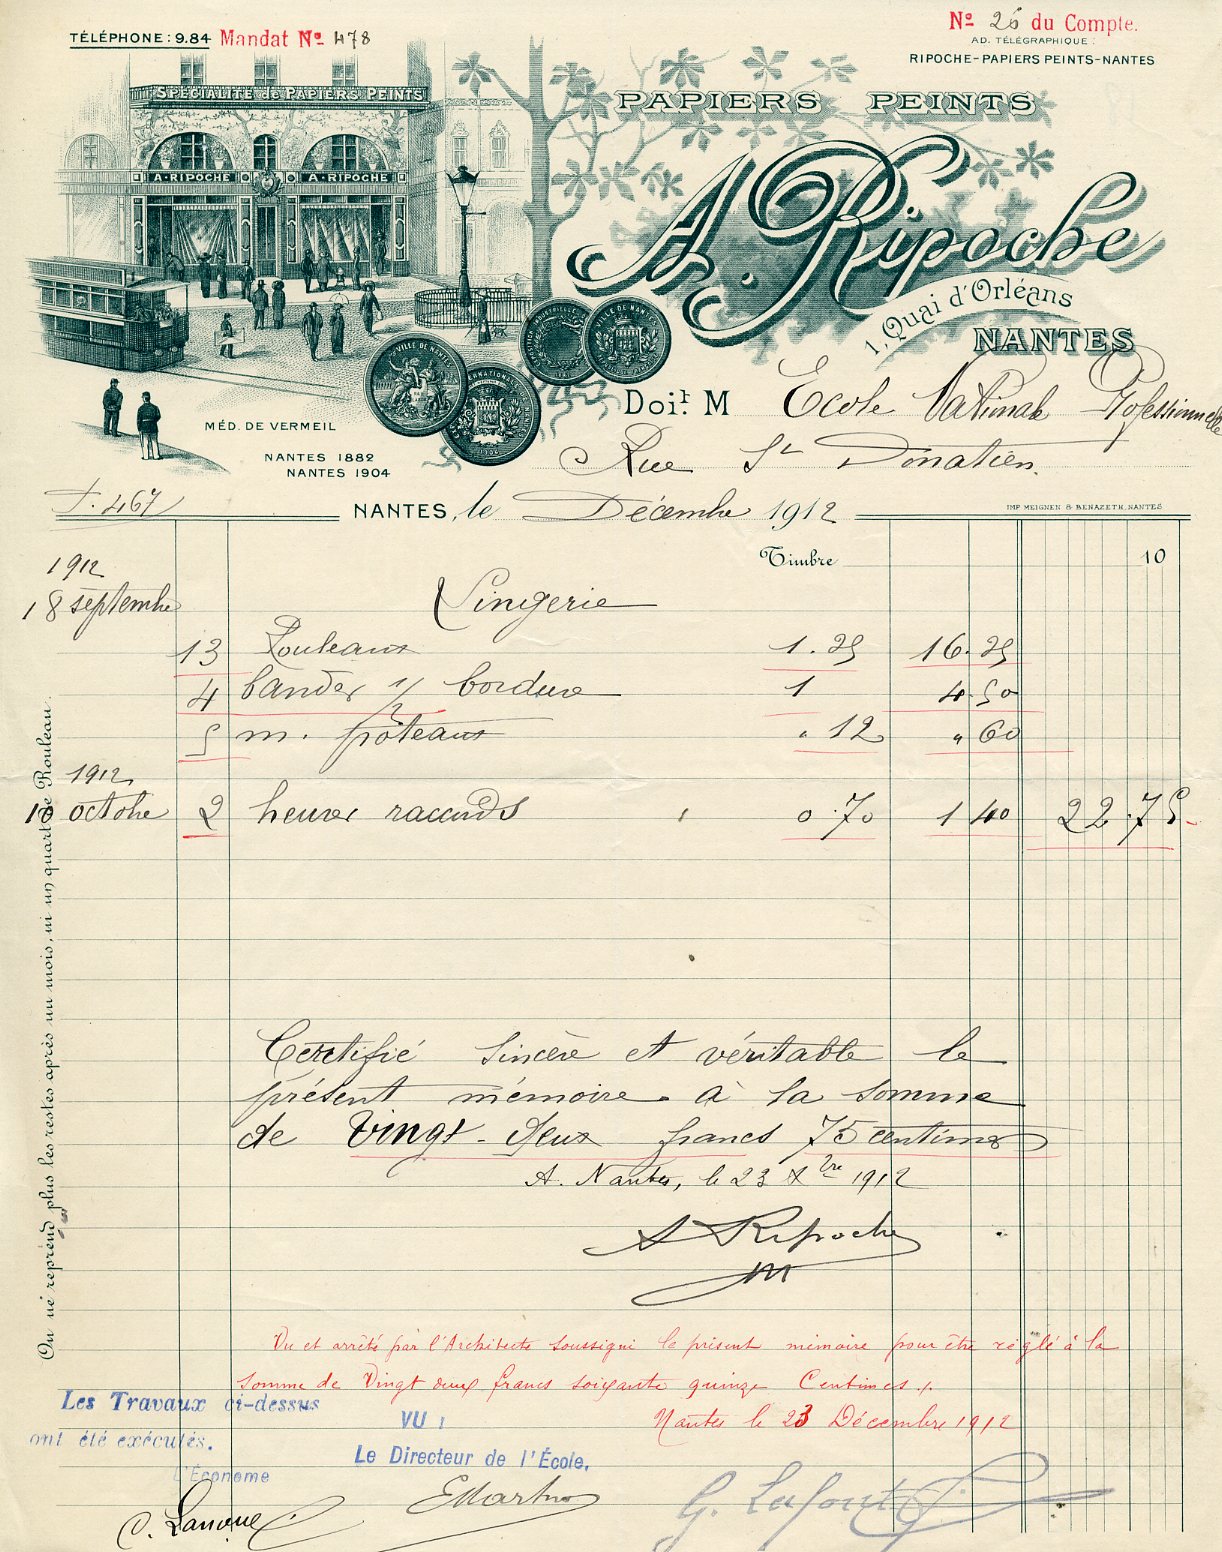 TÉLÉPHONE : 9.84 Mandat Nº 478
Nº 26 du Compte.
AD. TÉLÉGRAPHIQUE :
RIPOCHE-PAPIERS PEINTS-NANTES
SPÉCIALITÉ de PAPIERS PEINTS
A. RIPOCHE A. RIPOCHE
PAPIERS PEINTS
A. Ripoche
1, Quai d'Orléans
NANTES
MÉD. DE VERMEIL
NANTES 1882
NANTES 1904
Doit M Ecole Nationale Professionnelle
Rue St Donatien.
F. 467
NANTES, le Décembre 1912
IMP MEIGNEN & BENAZETH, NANTES
Timbre 10
1912
18 septembre Lingerie
13 Rouleaux 1.25 16.25
4 bandes 1/2 bordure 1 4.50
5 m. poteaux " 12 " 60
1912
10 octobre 2 heures raccords 0.70 1 40 22.75
On ne reprend plus les restes après un mois, ni un quart de Rouleau.
Certifié sincère et véritable le
présent mémoire à la somme
de Vingt-deux francs 75 centimes
A. Nantes, le 23 Xbre 1912
A Ripoche
Vu et arrêté par l'Architecte soussigné le présent mémoire pour être réglé à la
somme de Vingt deux francs soixante quinze Centimes./.
Nantes le 23 Décembre 1912
Les Travaux ci-dessus
ont été exécutés.
L'Économe
VU :
Le Directeur de l'École,
G. Lafont